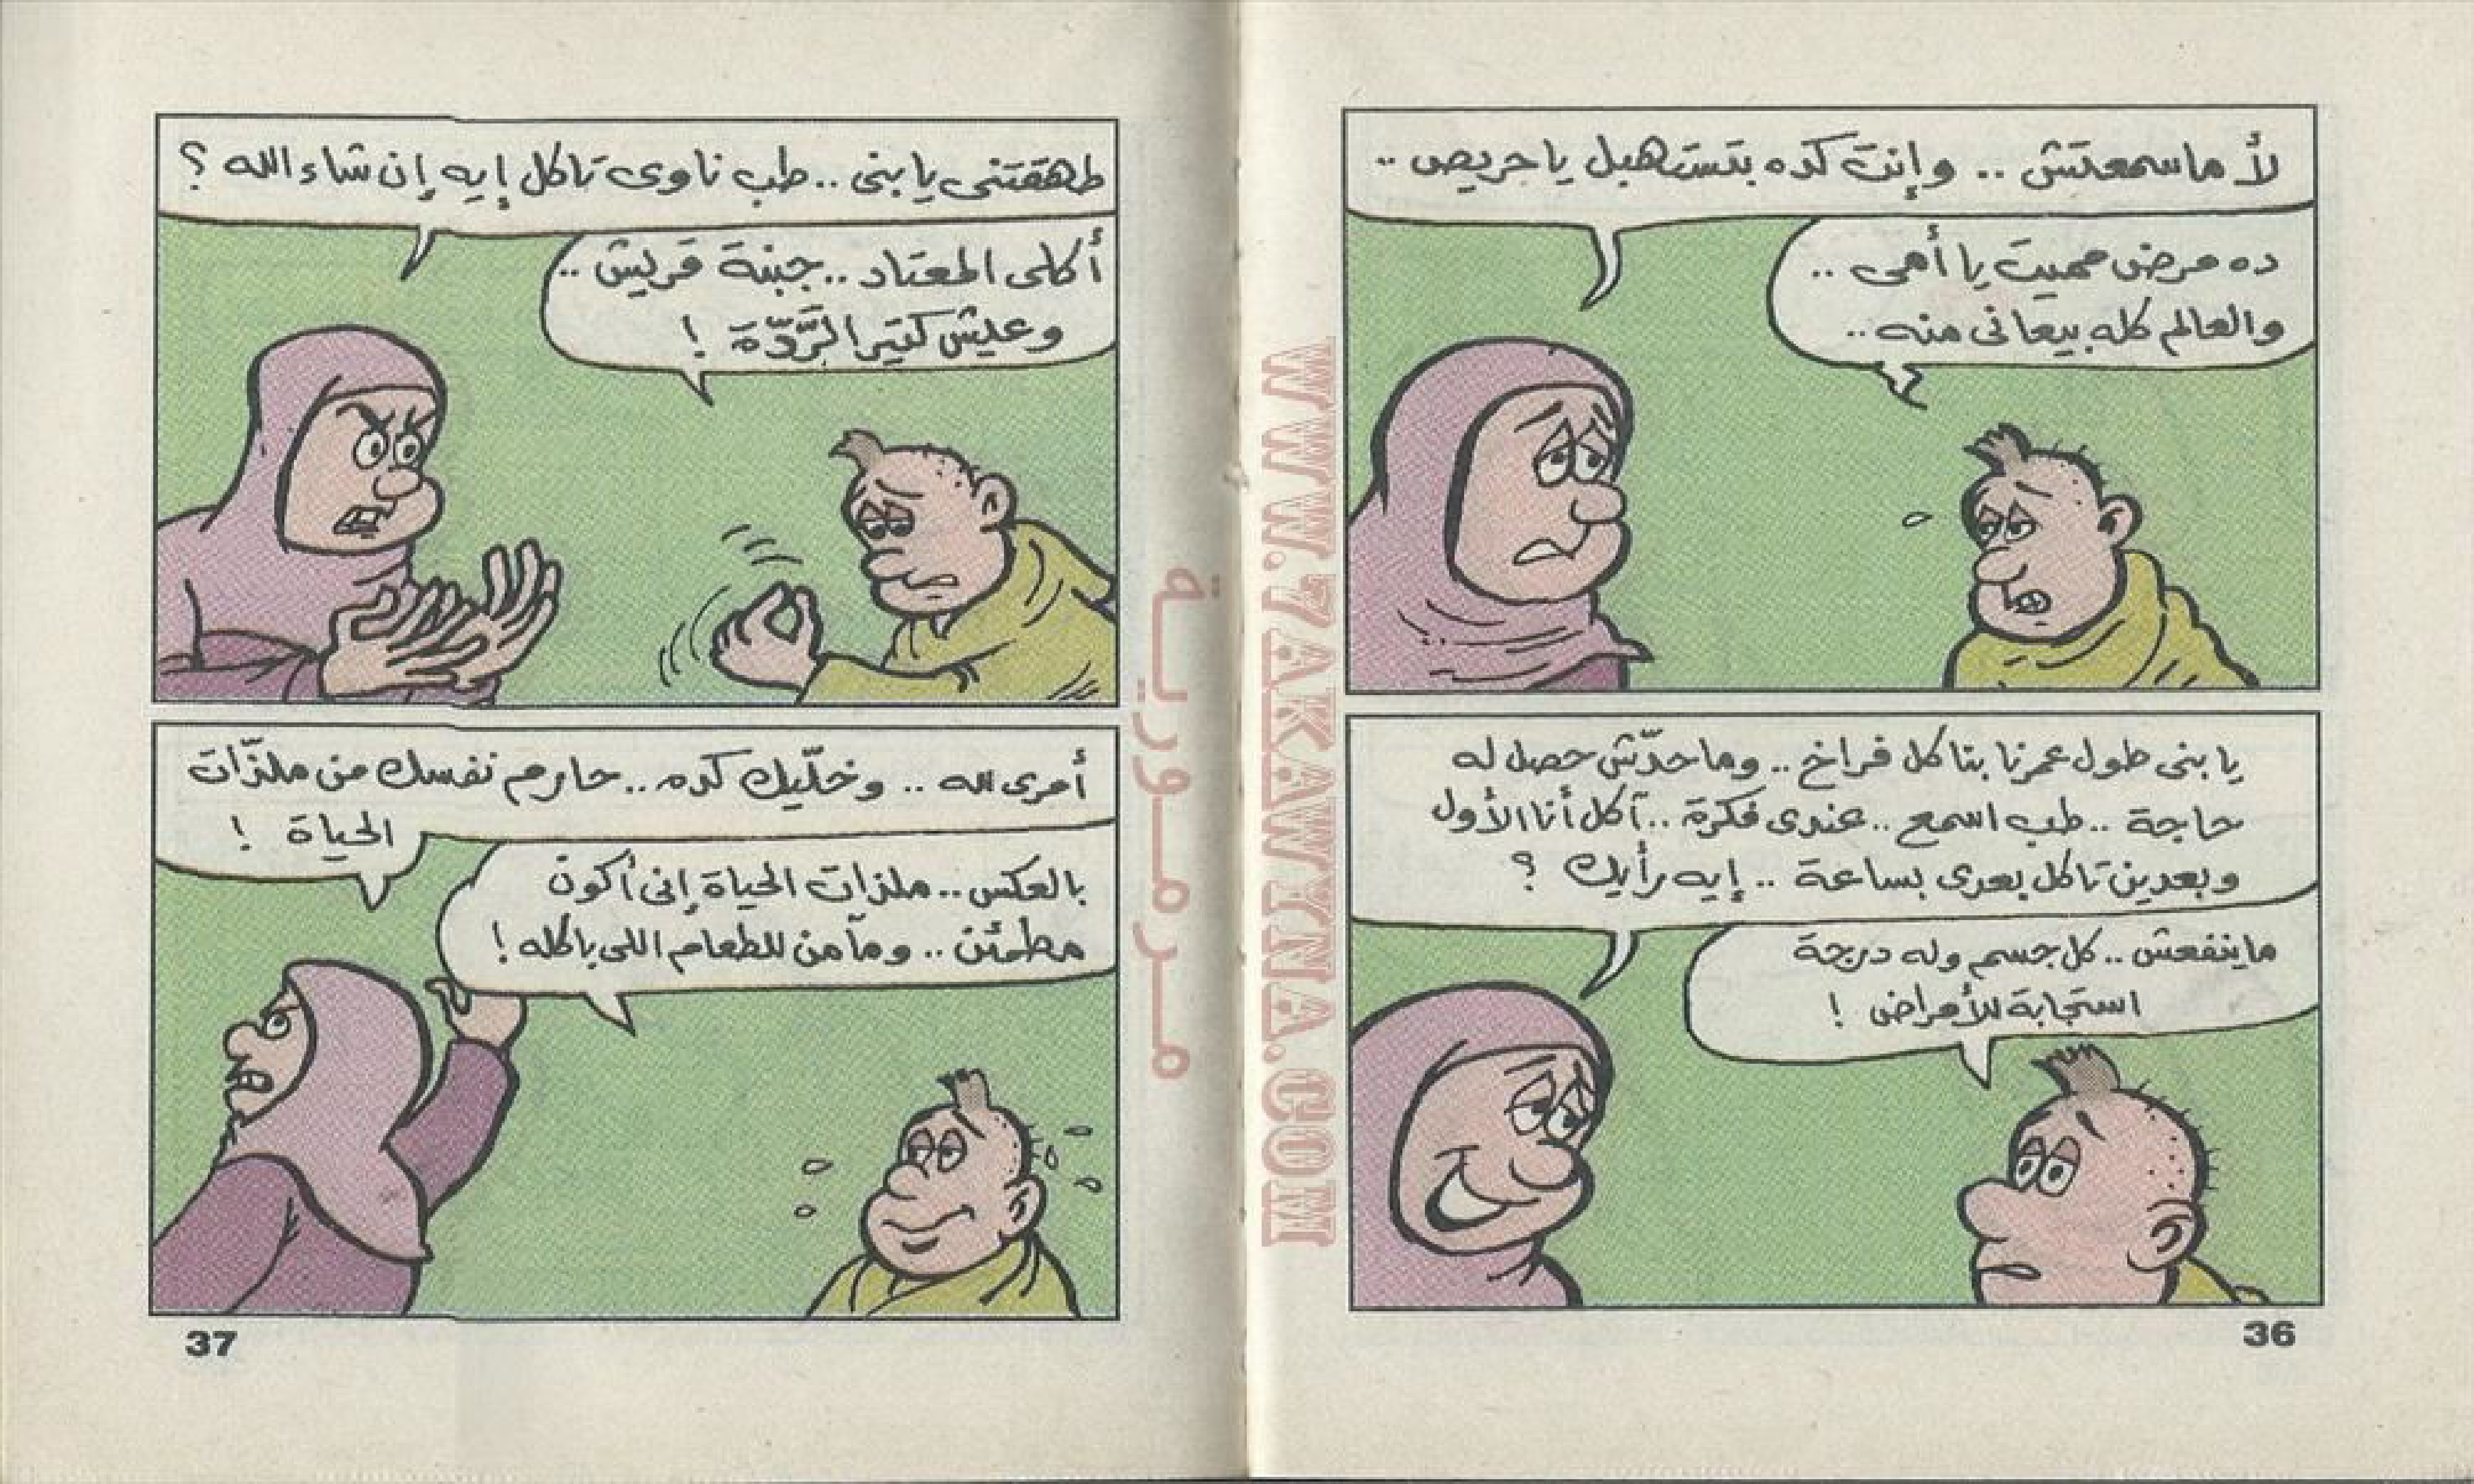 لأ ماسمعتش .. وإنت كده بتستهبل يا حريص ..
ده مرض مميت يا أمى ..
والعالم كله بيعانى منه ..
يا بنى طول عمرنا بناكل فراخ .. وماحدّش حصل له
حاجة .. طب اسمع .. عندى فكرة .. آكل أنا الأول
وبعدين تاكل بعدى بساعة .. إيه رأيك ؟
ماينفعش .. كل جسم وله درجة
استجابة للأمراض !
36
طهقتنى يا بنى .. طب ناوى تاكل إيه إن شاء الله ؟
أكلى المعتاد .. جبنة قريش ..
وعليش كتير الرَّدّة !
أمرى لله .. وخلّيك كده .. حارم نفسك من ملذّات
الحياة !
بالعكس .. ملذات الحياة إنى أكون
مطمئن .. ومآمن للطعام اللى باكله !
37
WWW.7AKAWYNA.COM
مرمورية